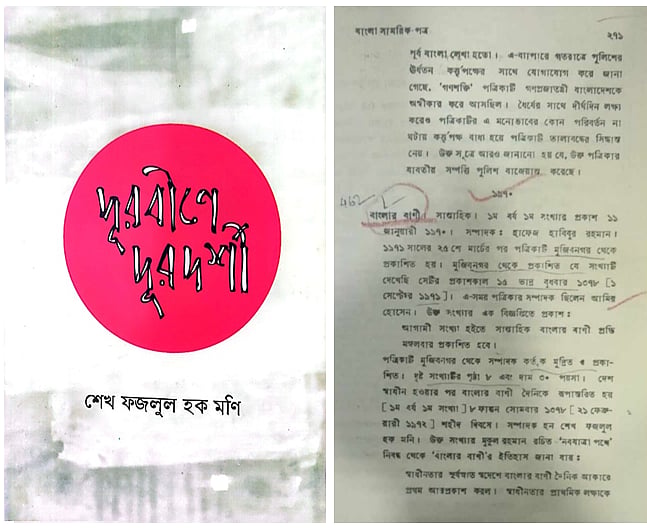 দূরবীণে
দূরদর্শী
শেখ ফজলুল হক মণি
বাংলা সাময়িক-পত্র ২৭১
পূর্ব বাংলা লেখা হতো। এ-ব্যাপারে গতরাত্রে পুলিশের
ঊর্ধতন কর্তৃপক্ষের সাথে যোগাযোগ করে জানা
গেছে, 'গণশক্তি' পত্রিকাটি গণপ্রজাতন্ত্রী বাংলাদেশকে
অস্বীকার করে আসছিল। ধৈর্যের সাথে দীর্ঘদিন লক্ষ্য
করেও পত্রিকাটির এ মনোভাবের কোন পরিবর্তন না
ঘটায় কর্তৃপক্ষ বাধ্য হয়ে পত্রিকাটি তালাবদ্ধের সিদ্ধান্ত
নেয়। উক্ত সূত্রে আরও জানানো হয় যে, উক্ত পত্রিকার
যাবতীয় সম্পত্তি পুলিশ বাজেয়াপ্ত করেছে।
১৯৭০
বাংলার বাণী। সাপ্তাহিক। ১ম বর্ষ ১ম সংখ্যার প্রকাশ ১১
জানুয়ারী ১৯৭০। সম্পাদক: হাফেজ হাবিবুর রহমান।
১৯৭১ সালের ২৫ শে মার্চের পর পত্রিকাটি মুজিবনগর থেকে
প্রকাশিত হয়। মুজিবনগর থেকে প্রকাশিত যে সংখ্যাটি
দেখেছি সেটির প্রকাশকাল ১৫ ভাদ্র বুধবার ১৩৭৮ [১
সেপ্টেম্বর ১৯৭১]। এ-সময় পত্রিকার সম্পাদক ছিলেন আমির
হোসেন। উক্ত সংখ্যার এক বিজ্ঞপ্তিতে প্রকাশ:
আগামী সংখ্যা হইতে সাপ্তাহিক বাংলার বাণী প্রতি
মঙ্গলবার প্রকাশিত হবে।
পত্রিকাটি মুজিবনগর থেকে সম্পাদক কর্তৃক মুদ্রিত ও প্রকা-
শিত। দৃষ্ট সংখ্যাটির পৃষ্ঠা ৮ এবং দাম ৩০ পয়সা। দেশ
স্বাধীন হওয়ার পর বাংলার বাণী দৈনিকে রূপান্তরিত হয়
[১ম বর্ষ ১ম সংখ্যা] ৮ ফাল্গুন সোমবার ১৩৭৮ [২১ ফেব্রু-
য়ারী ১৯৭২] শহীদ দিবসে। সম্পাদক হন শেখ ফজলুল
হক মনি। উক্ত সংখ্যার মুকুল রহমান রচিত 'নবযাত্রা পথে'
নিবন্ধ থেকে 'বাংলার বাণী'র ইতিহাস জানা যায়:
স্বাধীনতার সূর্যস্নাত স্বদেশে বাংলার বাণী দৈনিক আকারে
প্রথম আত্মপ্রকাশ করল। স্বাধীনতার প্রাথমিক লক্ষ্যকে